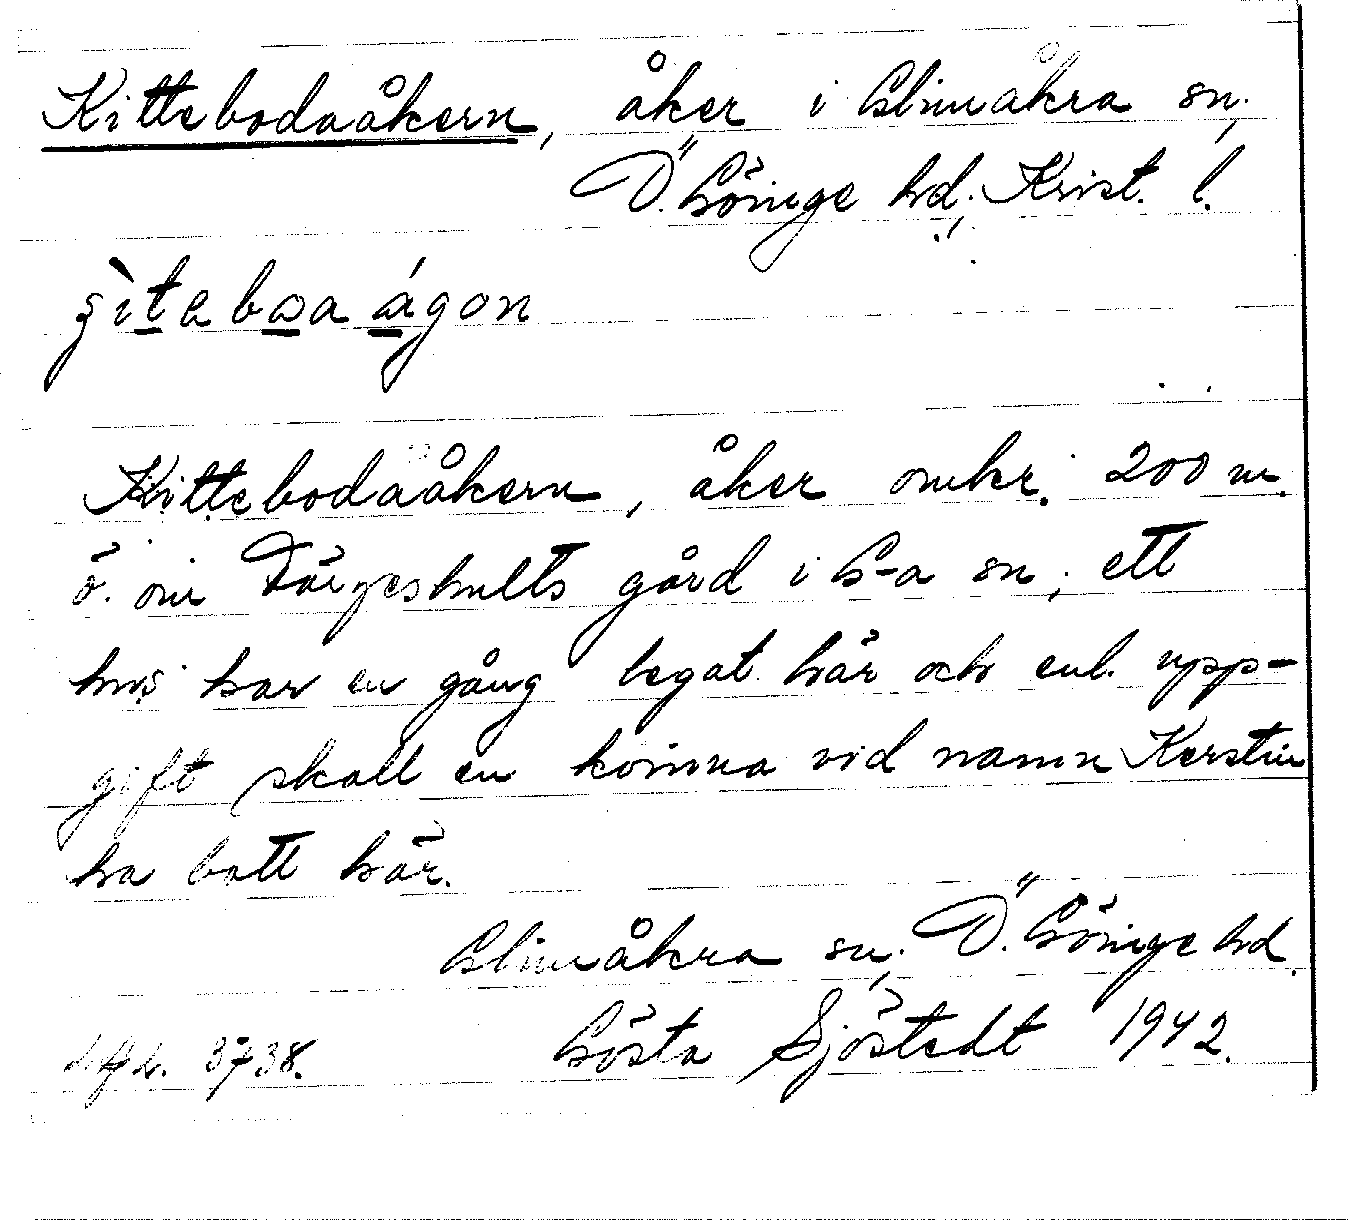 Kittebodaåkern, åker i Glimåkra sn;
Ö. Göinge hd; Krist. l.
Kittebodaåkern, åker omkr. 200 m.
ö. om Färgeshults gård i G-a sn; ett
hus har en gång legat här och enl. upp-
gift skall en kvinna vid namn Kerstin
ha bott här.
Glimåkra sn; Ö. Göinge hd.
3738. Gösta Sjöstedt 1942.